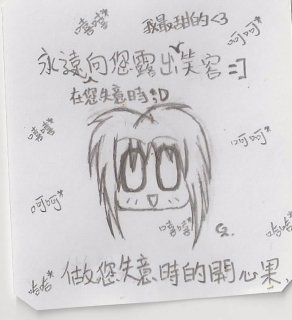 嘻嘻* 我最甜的<3 呵呵*
永遠向您露出笑容=]
在您失意時;D
嘻嘻* 呵呵*
呵呵* 嘻嘻* 嘻嘻*
哈哈* 做您失意時的開心果 哈哈*